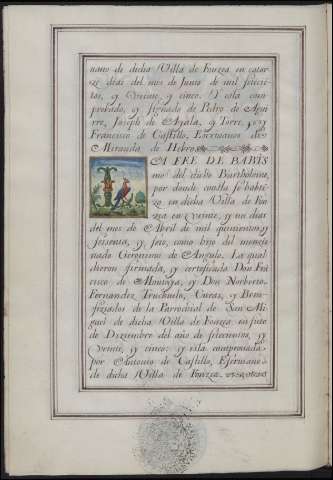 uano de dicha Villa de Fonzea en cator
ze dias del mes de Junio de mil setecien
tas, y Veinte, y cinco. Y esta com
probado, y signado de Pedro de Agui
rre, Joseph de Ayala, y Torre, y
Francisco de Castillo, Escrivanos de
Miranda de Hebro
LA FEE DE BABTIS
mo del dicho Bartholome,
por donde consta se babti
zo en dicha Villa de Fon
zea en Veinte, y un dias
del mes de Abril de mil quinientos, y
sesenta, y seis, como hijo del mencio
nado Geronimo de Angulo. La qual
dieron firmada, y certificada Don Fran
cisco de Montoya, y Don Norberto
Fernandez Truchuelo, Curas, y Bene
fiziados de la Parrochial de San Mi
guel de dicha Villa de Fonzea en siete
de Diziembre del año de setecientos, y
Veinte, y cinco: y esta comprovada
por Antonio de Castillo, Escrivano
de dicha Villa de Fonzea